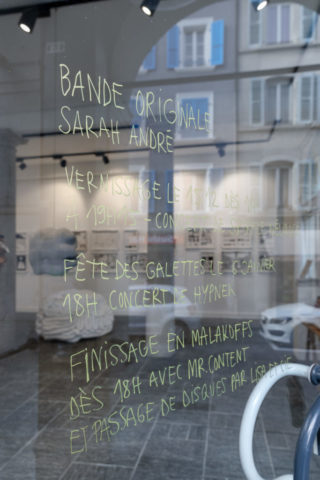 BANDE ORIGINALE
SARAH ANDRÉ
VERNISSAGE LE DÈS
À 19H
FÊTE DES GALETTES LE JANVIER
18H CONCERT DE HYPNER
FINISSAGE EN MALAKOFFS
DÈS 18H AVEC MR. CONTENT
ET PASSAGE DE DISQUES PAR